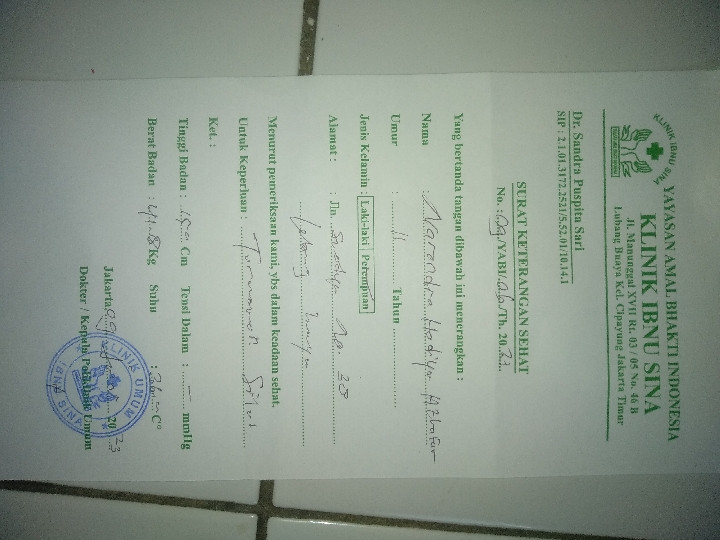 KLINIK IBNU SINA
YAYASAN AMAL BHAKTI INDONESIA
KLINIK IBNU SINA
Jl. Manunggal XVII Rt. 03 / 05 No. 46 B
Lubang Buaya Kel. Cipayung Jakarta Timur
Dr. Sandra Puspita Sari
SIP : 2.1.01.3172.2521/5.52.01/10.14.1
SURAT KETERANGAN SEHAT
No. : /YABI/ /Th. 20 23
Yang bertanda tangan dibawah ini menerangkan :
Nama : Narendra
Umur : 11 Tahun
Jenis Kelamin : Laki-laki Perempuan
Alamat : : Jln.
Menurut pemeriksaan kami, ybs dalam keadaan sehat.
Untuk Keperluan : Turnamen
Ket. :
Tinggi Badan : Cm Tensi Dalam : - mmHg
Berat Badan : Kg Suhu : C°
Jakarta 20 23
Dokter / Kepala Poliklinik Umum
KLINIK UMUM
IBNU SINA